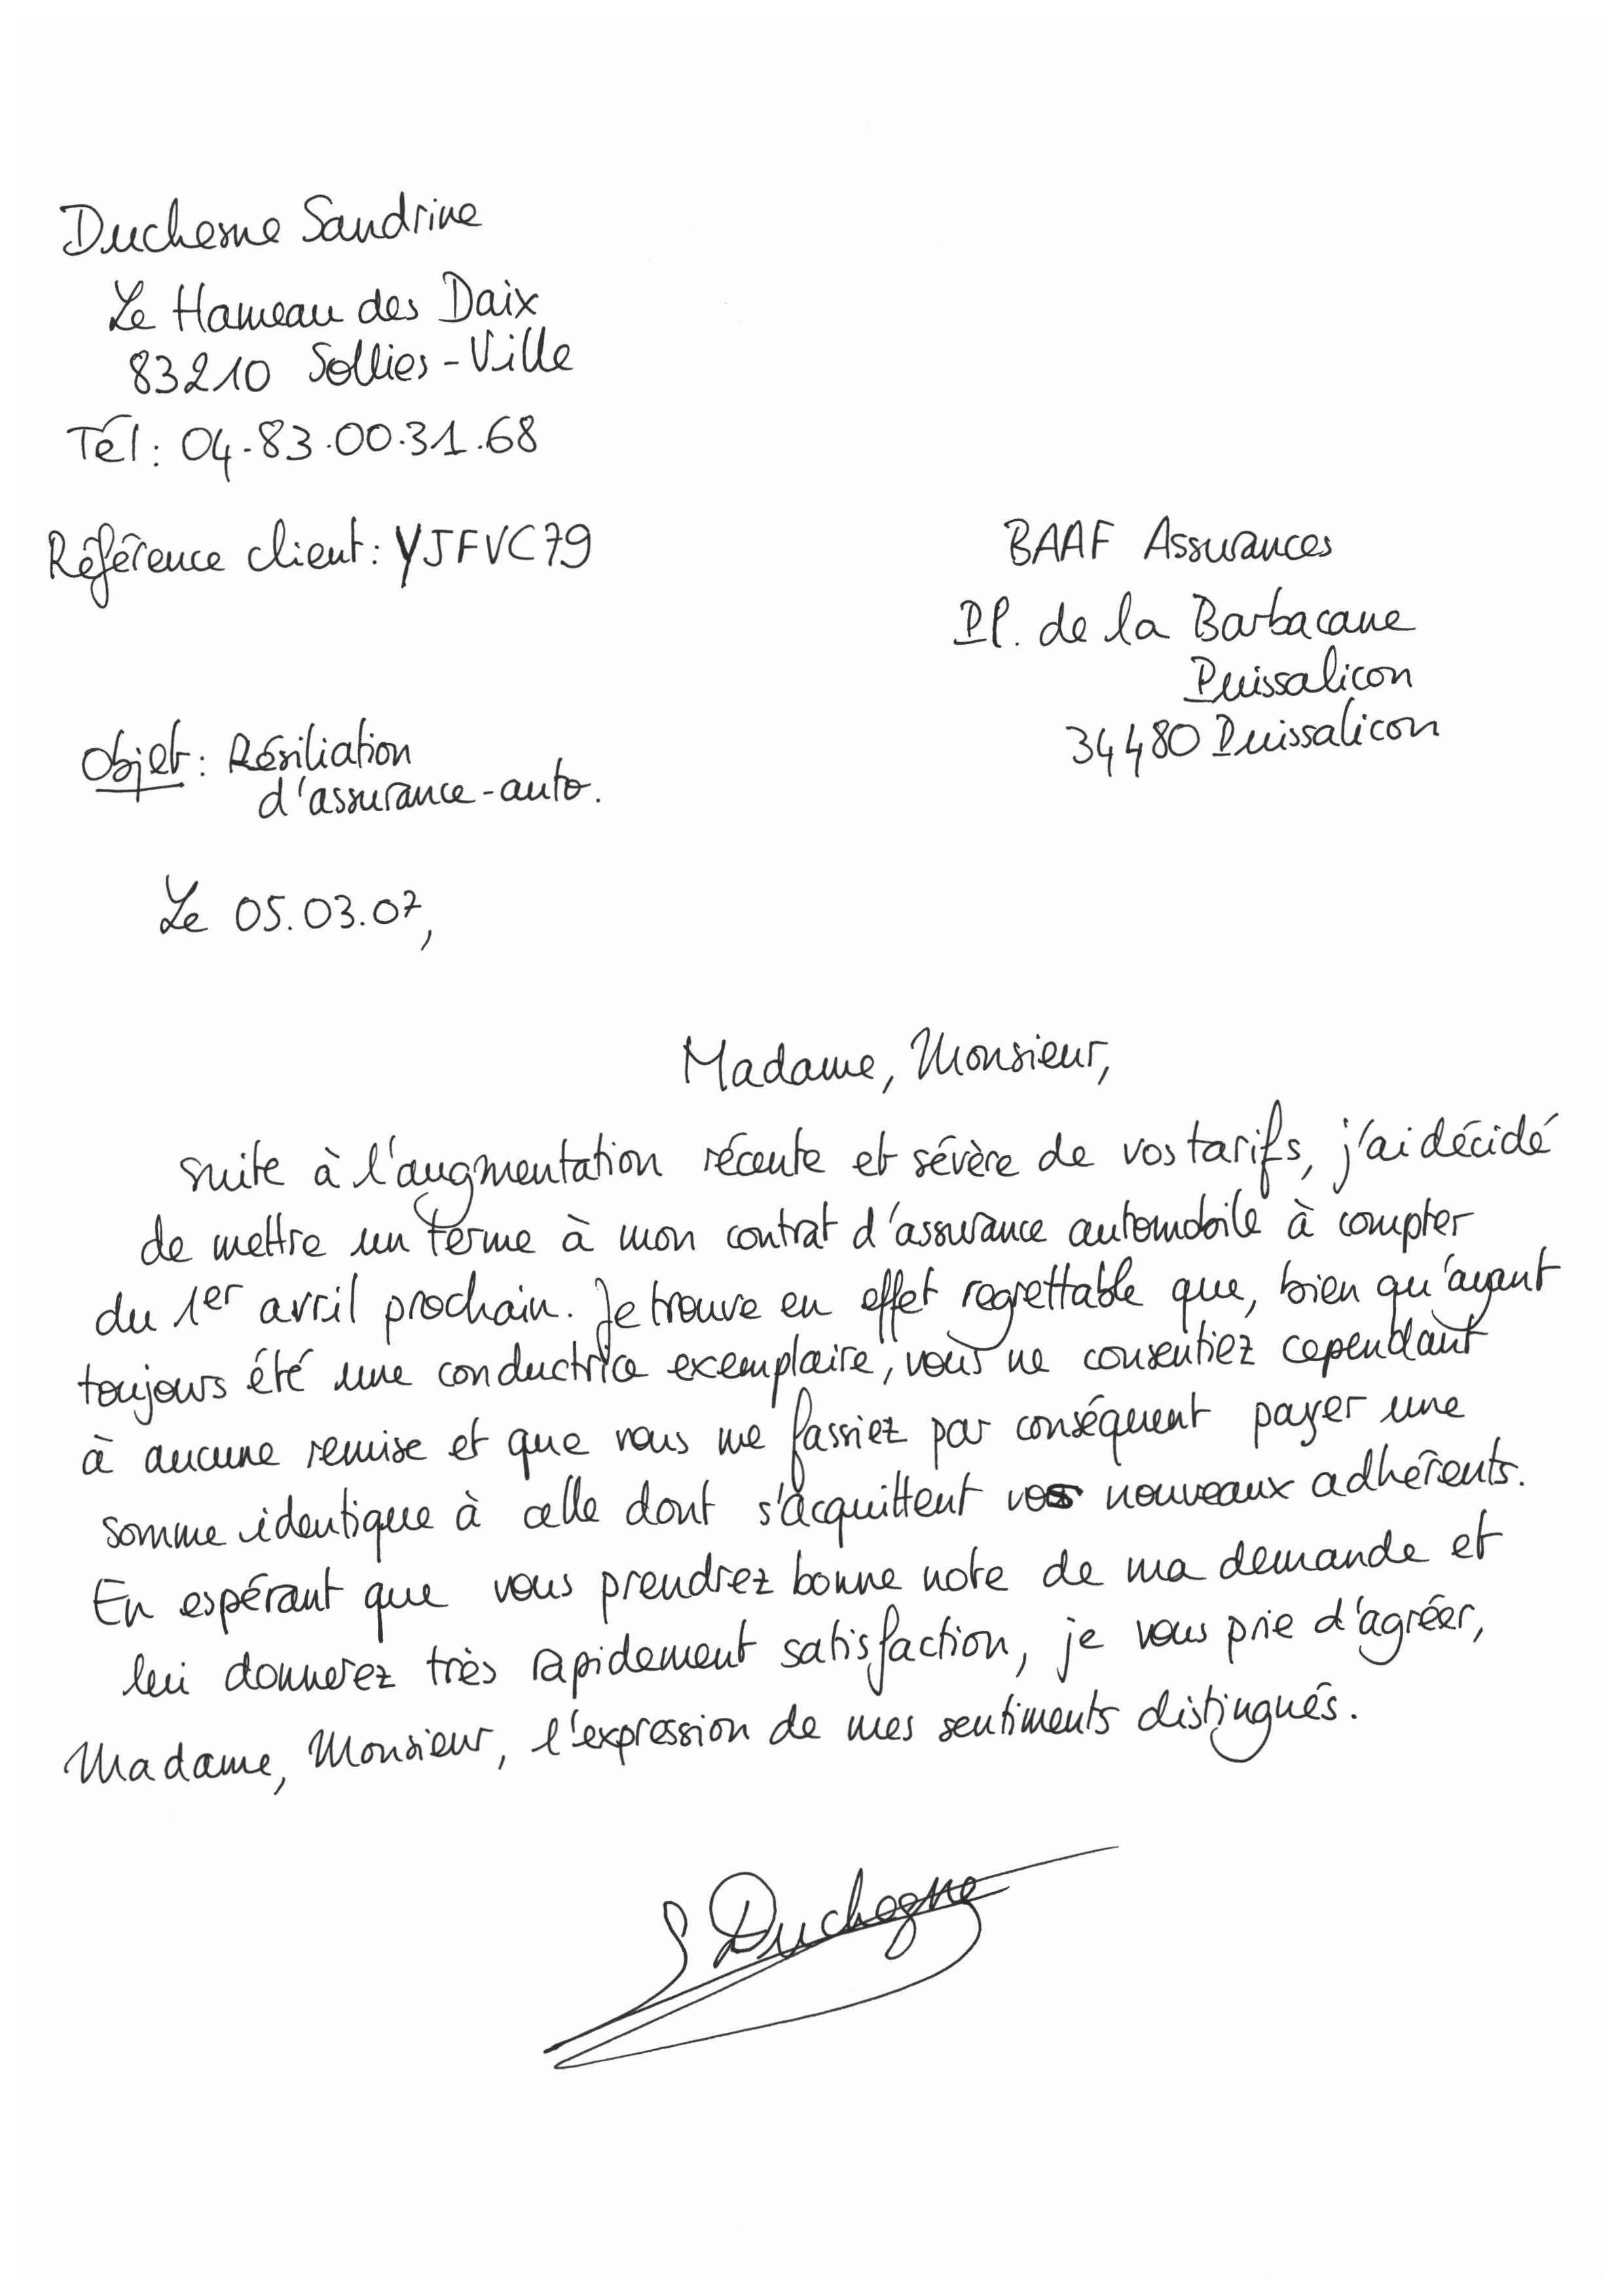 Duchesne Sandrine
Le Hameau des Daix
83210 Sollies-Ville
Tél : 04.83.00.31.68
Référence client : YJFVC79
BAAF Assurances
Pl. de la Barbacane
Puissalicon
34480 Puissalicon
Objet : Résiliation
d'assurance-auto.
Le 05.03.07,
Madame, Monsieur,
suite à l'augmentation récente et sévère de vos tarifs, j'ai décidé
de mettre un terme à mon contrat d'assurance automobile à compter
du 1er avril prochain. Je trouve en effet regrettable que, bien qu'ayant
toujours été une conductrice exemplaire, vous ne consentiez cependant
à aucune remise et que vous me fassiez par conséquent payer une
somme identique à celle dont s'acquittent vos nouveaux adhérents.
En espérant que vous prendrez bonne note de ma demande et
lui donnerez très rapidement satisfaction, je vous prie d'agréer,
Madame, Monsieur, l'expression de mes sentiments distingués.
S Duchesne